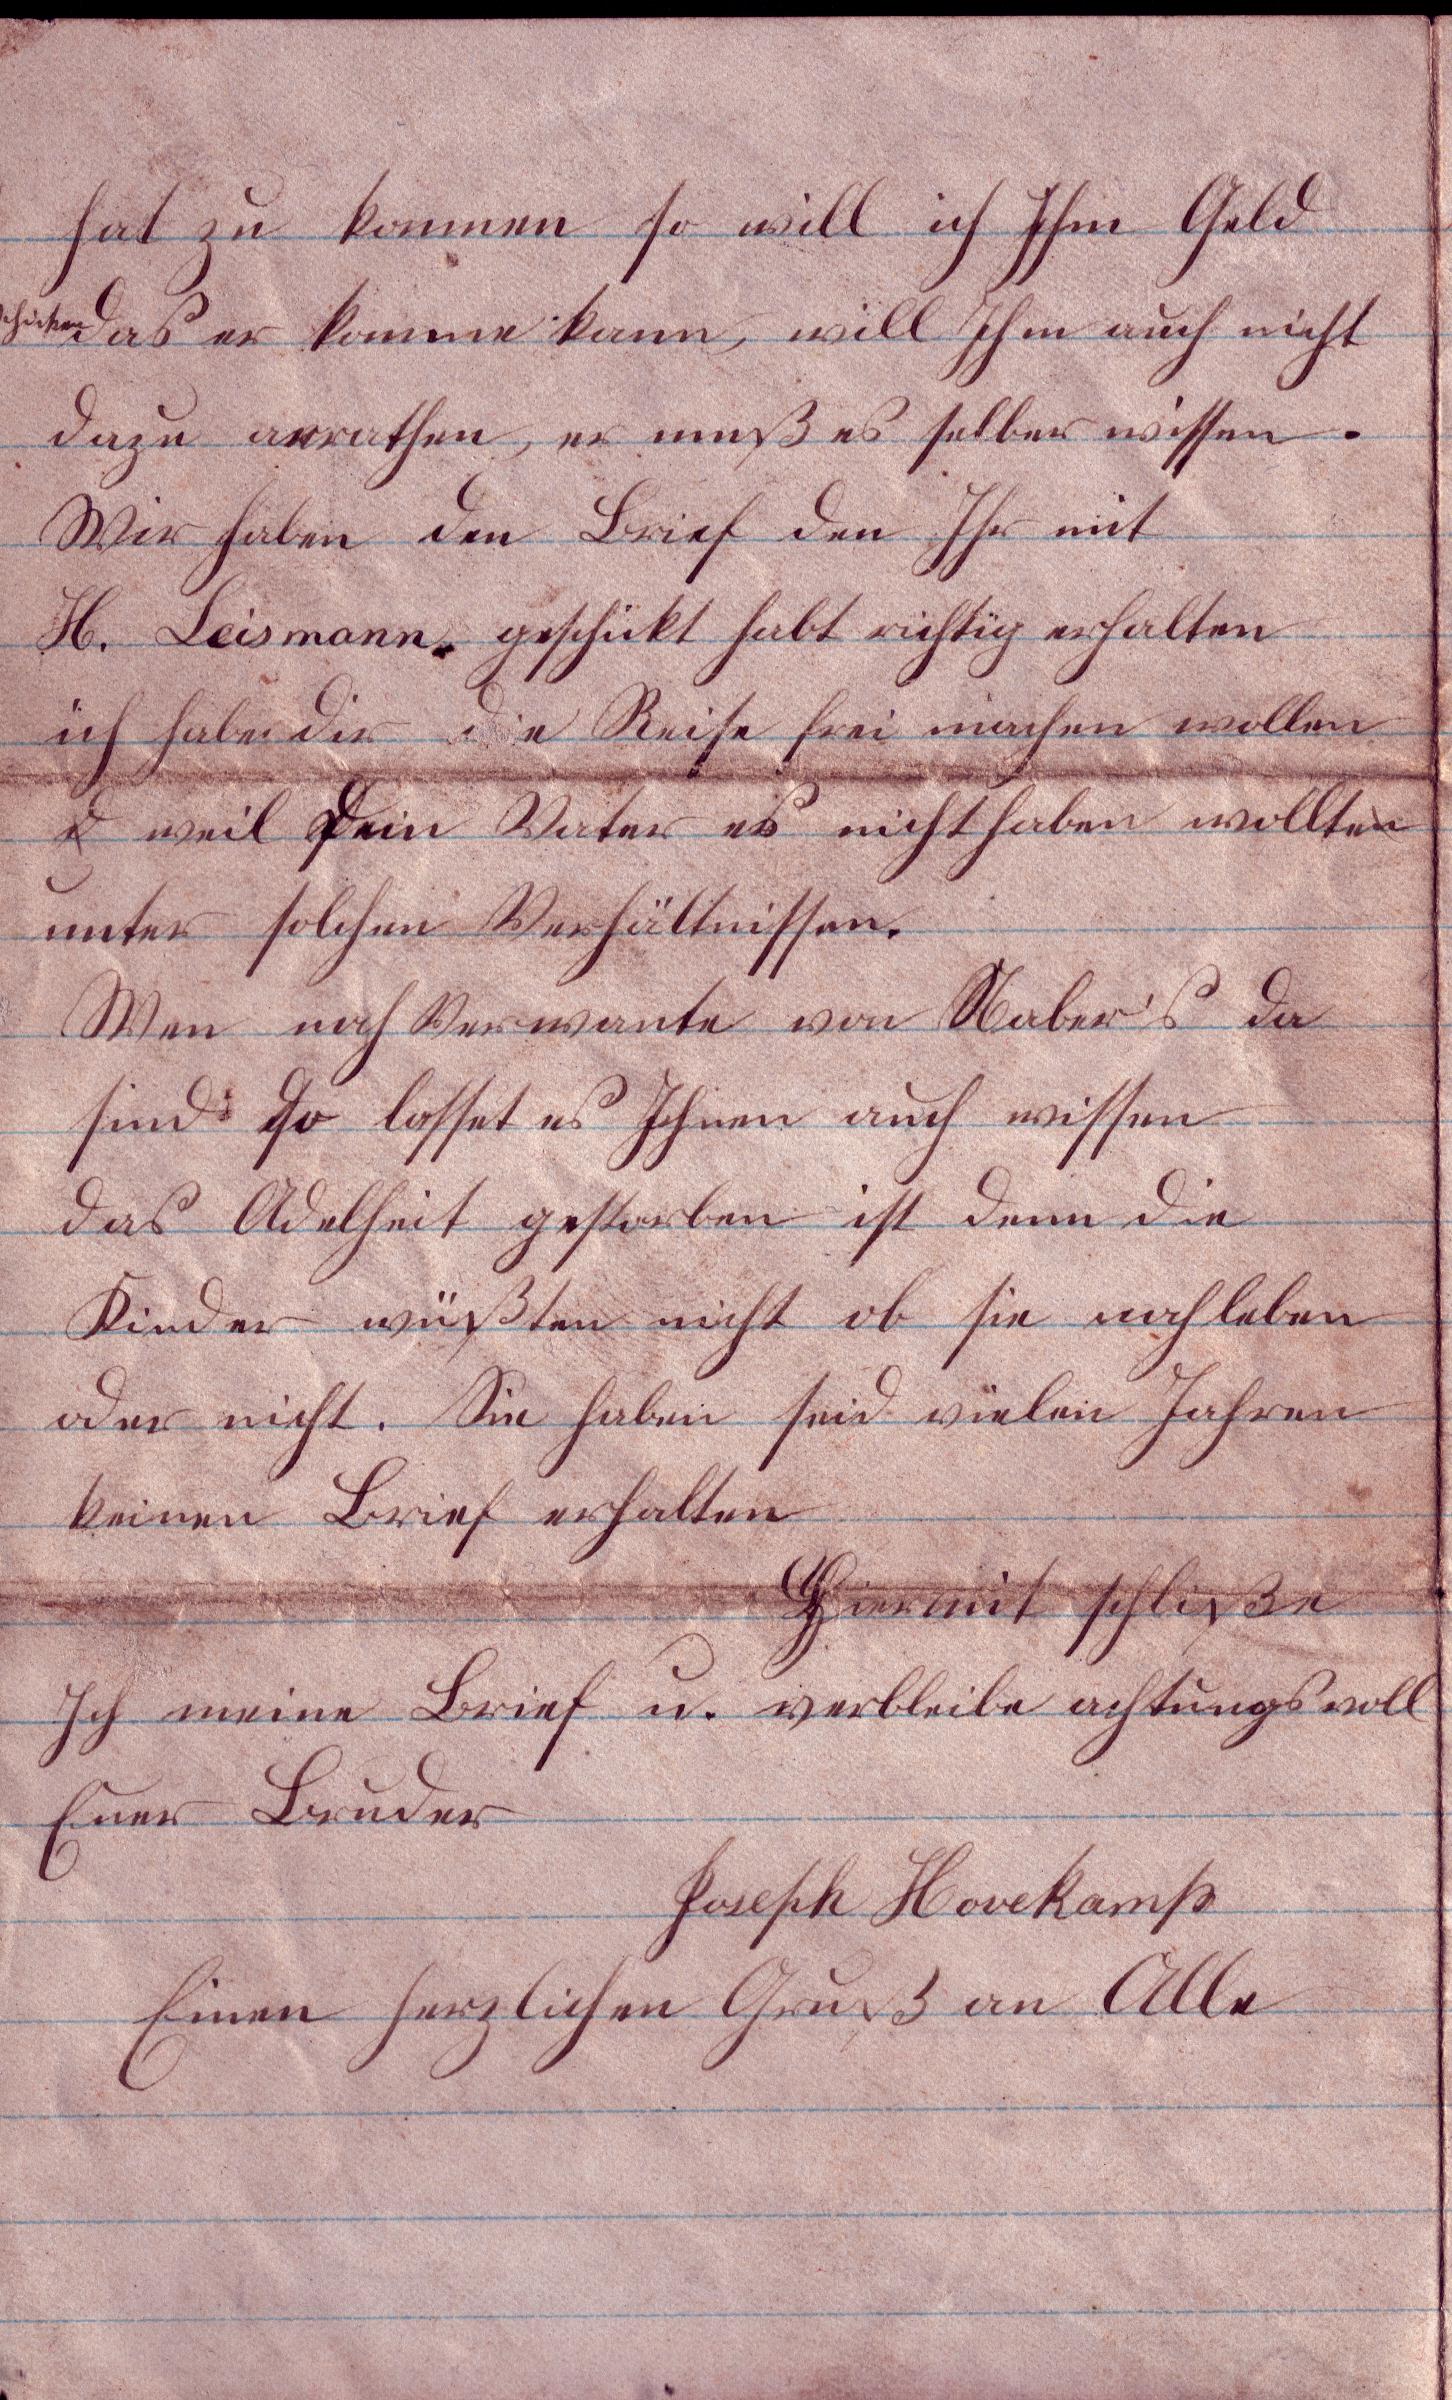 hat zu kommen so will ich Ihm Geld
schicken das er komme kann, will Ihm auch nicht
dazu anrathen, er muß es selber wissen.
Wir haben den Brief den Ihr mit
H. Leismann. geschickt habt richtig erhalten
ich habe dir die Reise frei machen wollen
weil Dein Vater es nicht haben wollte
unter solchen Verhältnissen.
Wen noch Verwante von Naber's da
sind so lasset es Ihnen auch wissen
das Adelheit gestorben ist denn die
Kinder wüßten nicht ob sie noch leben
oder nicht. Sie haben seid vielen Jahren
keinen Brief erhalten
Hiermit schließe
Ich meine Brief u. verbleibe achtungsvoll
Euer Bruder
Joseph Hovekamp
Einen herzlichen Gruß an Alle